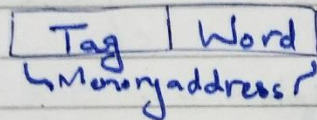 Tag | Word
Memory address